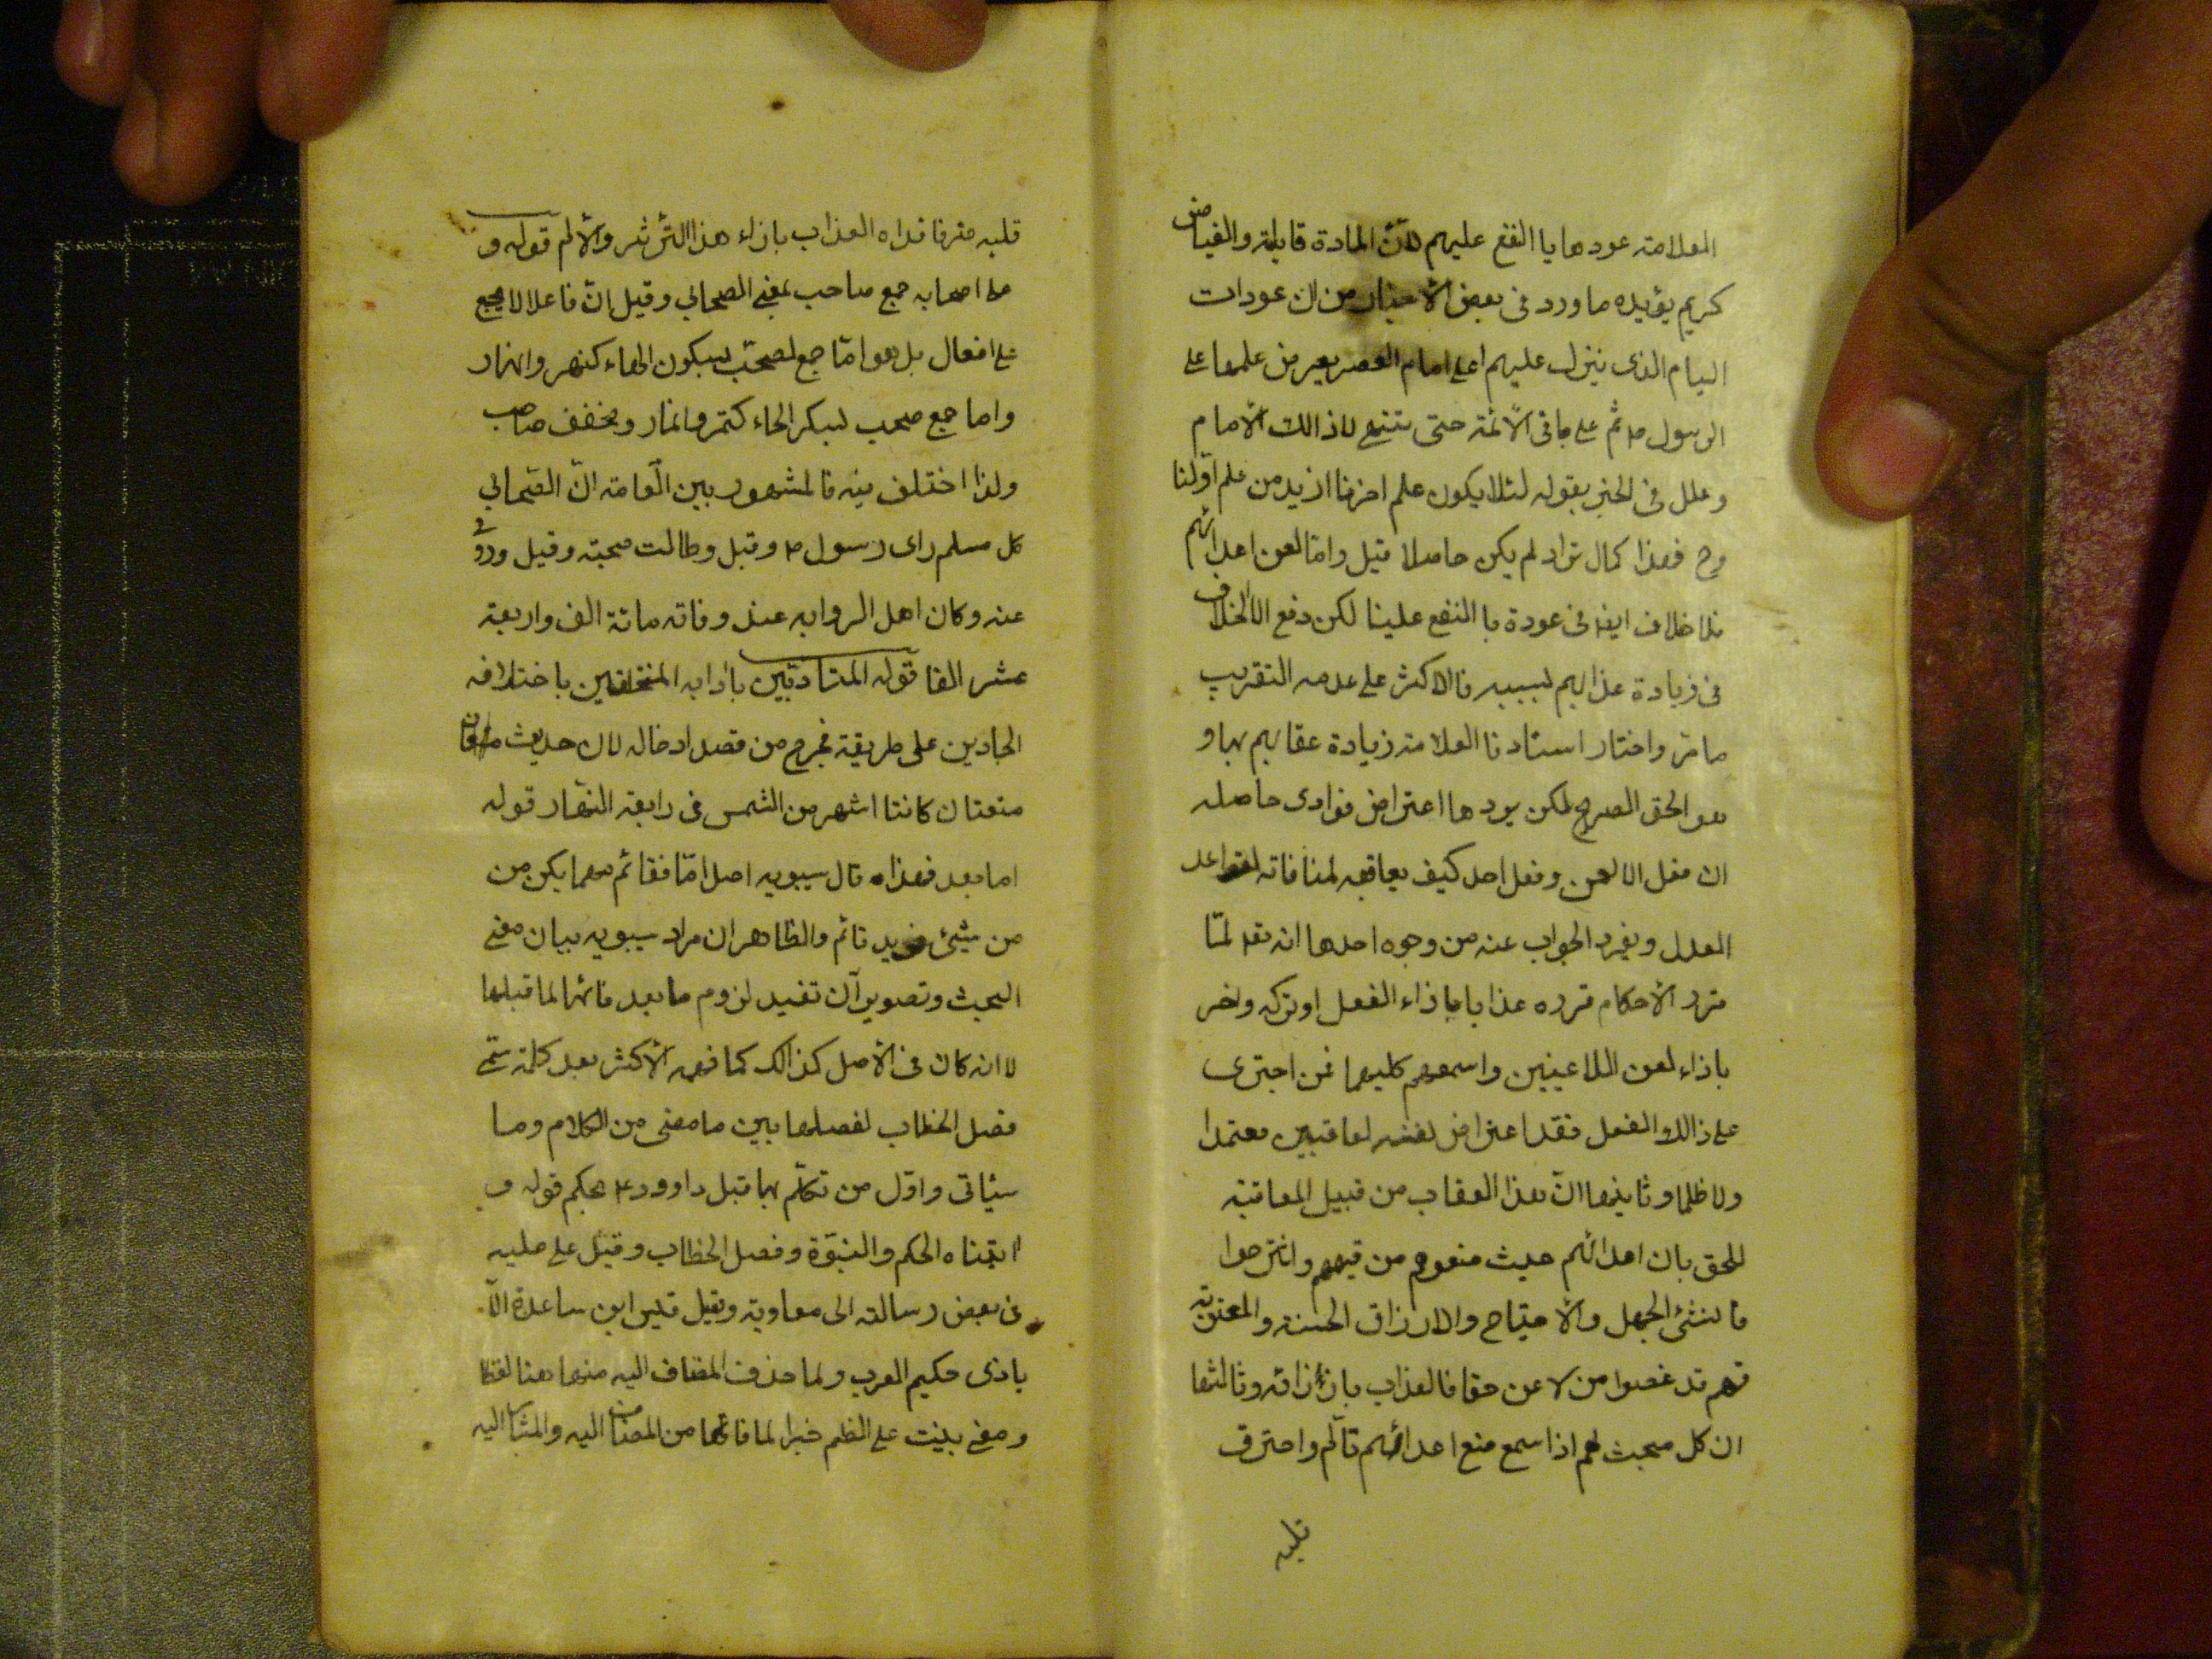 العلامة عودها يا النفع عليهم لان المادة قابلة والفياض
كريم يؤيده ما ورد فى بعض الأخبار من ان عودات
اليام الذى ينزل عليهم اعلى امام العصر يعرض علمها على
الرسول ص ثم على باقى الأئمة حتى ينتهى لاذالك الامام
وعلل فى الخبر بقوله لئلا يكون علم اخرنا ازيد من علم اولنا
وح فهذا كمال تراد لم يكن حاصلا قبل واما لعن اعدائهم
فلا خلاف ايضا فى عودة با النفع علينا لكن دفع الالخلاف
فى زيادة عذابهم بسببه فالاكثر على عدمه التقريب
ما مر واختار استادنا العلامة زيادة عقابهم بها و
هو الحق الصريح لكن يردها اعتراض فوادى حاصله
ان فعل اللعن وفعل احد كيف يعاقبه لمنافاته لقواعد
العدل ويفرد الجواب عنه من وجوه احدها انه تعم لما
قرر الأحكام قرره عذابا باذاء الفعل او تركه واخر
باذاء لعن اللاعنين واسمعهم كليهما فمن اجترى
على ذالك الفعل فقد اعتراض لنفسه لعاقبيين معتمدا
ولا ظلما وثانيها ان هذا العقاب من قبيل المعاقبة
للحق بان اعدائهم حيث منعوهم من قيهم وانترحوا
ما لنشئ الجهل والأ حتياج والارزاق الحسنة والمعنوية
فهم قد غصوا من لا عن حقا فالعذاب بازأ زاقه وثالثها
ان كل محب لهم اذا سمع منع اعدائهم تألم واحترق
قلبه
قلبه مترفا فداه العذاب باذاء هذا التأثر والألم قوله و
على اصحابه جمع صاحب بمعنى الصحابى وقيل ان فاعلا لا يجمع
على افعال بل هو اما جمع لصحب بسكون الحاء كنهر وانهار
واما جمع صحب بكسر الحاء كتمر وانمار ومخفف صاحب
ولذا اختلف فيه فالمشهور بين العامة ان الصحابى
كل مسلم راى رسول ص وقبل وطالت صحبته وقيل وروى
عنه وكان اهل الروايه عند وفاته مائة الف واربعة
عشر الفا قوله المتادبين باٰدابه المتخلفين باختلافه
الجادين على طريقة فخرج من قصد ادخاله لان حديث
متعتان كانتا اشهر من الشمس فى رابعة النهار قوله
اما بعد فهذا ه قال سيبويه اصل اما فقائم مهما يكن من
من شيئ فزيد قائم والظاهر ان مراد سيبويه بيان معنى
البحث وتصوير آن تفيد لزوم ما بعد فائها لما قبلها
لا انه كان فى الأصل كذالك كما فهم الأكثر بعد كلمة تسمى
فصل الخطاب لفصلها بين ما مضى من الكلام وما
سيأتى واول من تكلم بها قبل داوود ع بحكم قوله و
اتيناه الحكم والنبوة وفصل الخطاب وقيل على عليه
فى بعض رسالته الى معاوية وقيل قيس ابن ساعدة الا
يادى حكيم العرب ولما حذف المضاف اليه منها هنا لفظا
ومعنى بنيت على الظم خبرا لما فاتها من المضاف اليه والمثا اليه